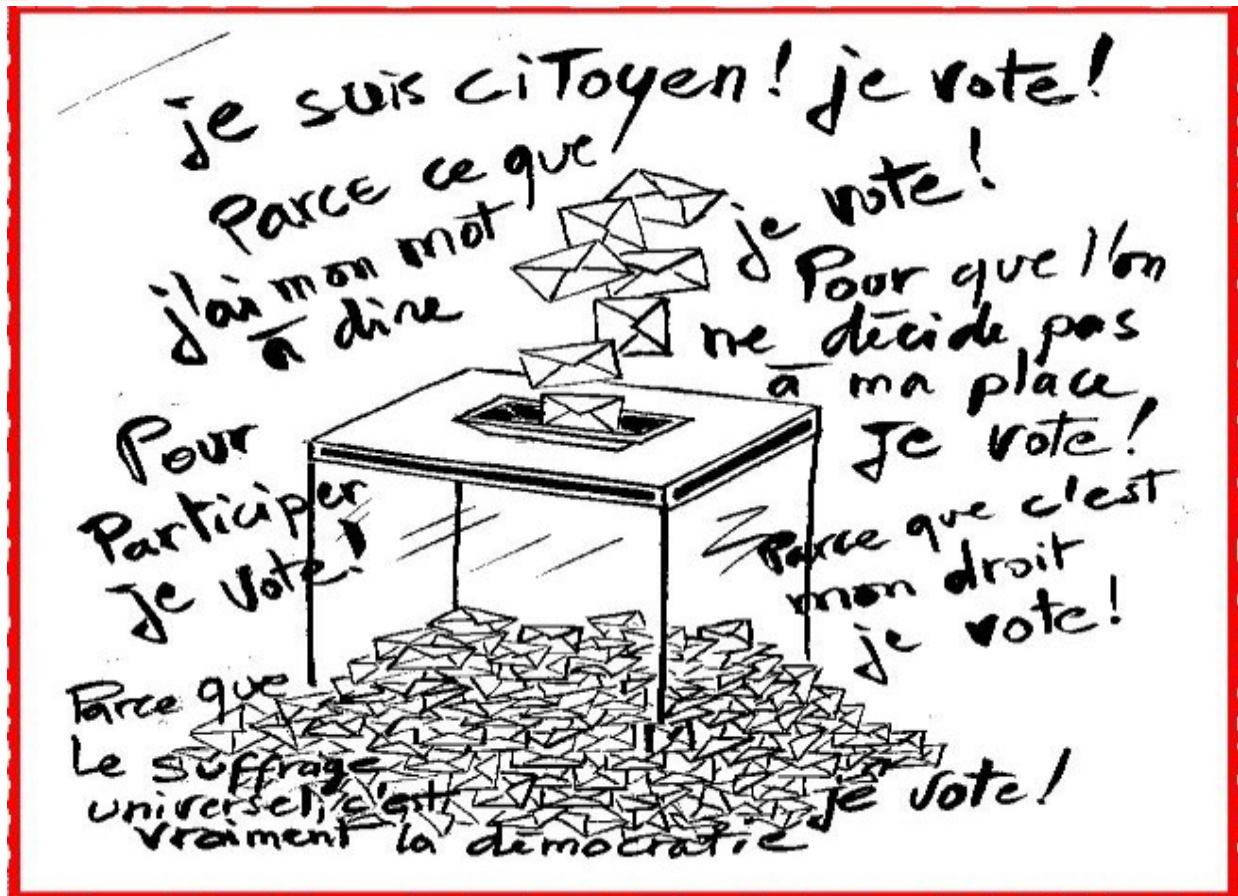 je suis ciToyen! je vote!
Parce ce que
j'ai mon mot
à dire
je vote!
Pour que l'on
ne décide pas
à ma place
je vote!
Pour
Participer
je vote!
Parce que c'est
mon droit
je vote!
Parce que
Le suffrage
universel, c'est
vraiment la démocratie
je vote!